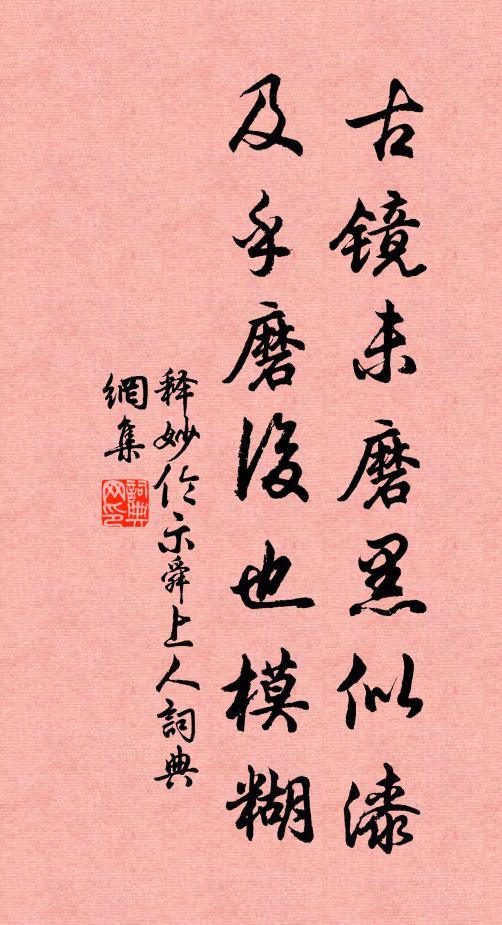 古镜未磨黑似漆
及乎磨後也模糊
释妙伦示舜上人詞典
網集
詞典
网印